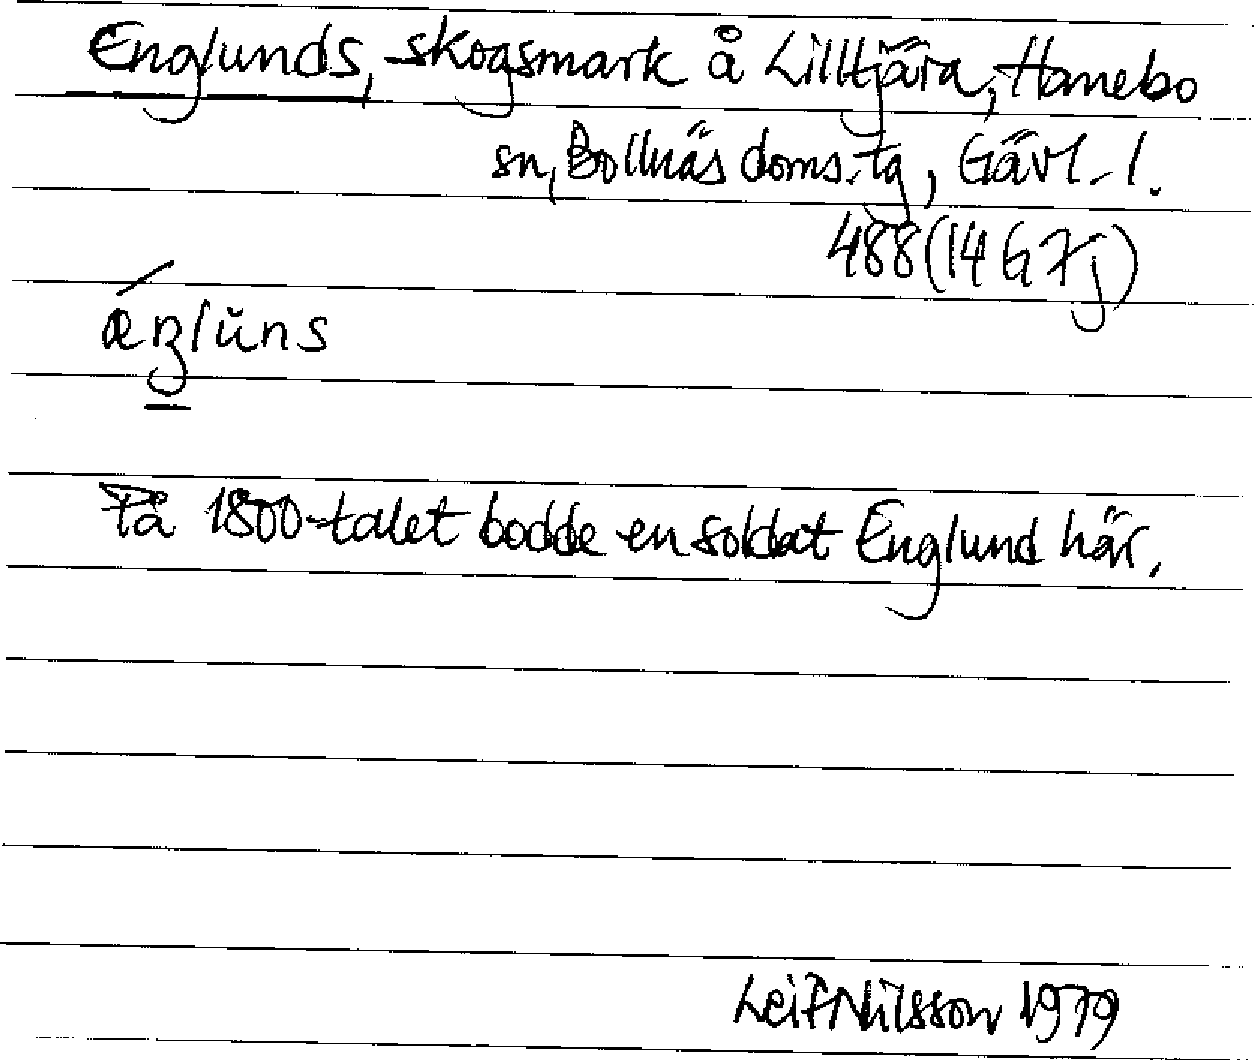 Englunds, skogsmark å Lilltjära, Hanebo
sn, Bollnäs doms.tg, Gävl.l.
488(14G7j)
ǽŋlŭns
På 1800-talet bodde en soldat Englund här.
Leif Nilsson 1979